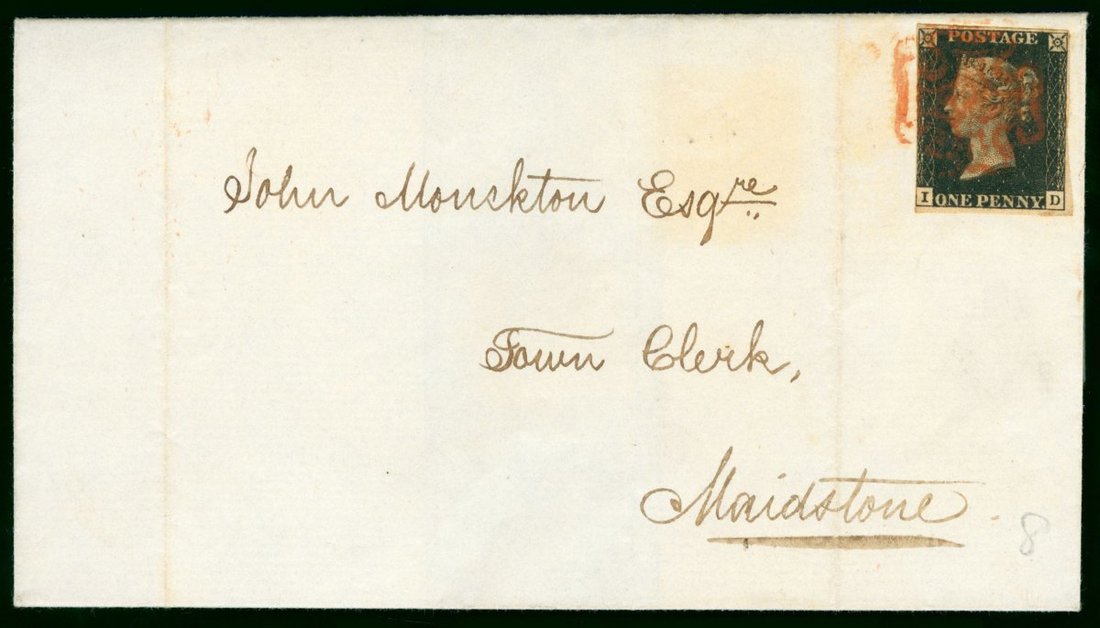 POSTAGE
I ONE PENNY D
John Monskton Esqre
Town Clerk,
Maidstone
8